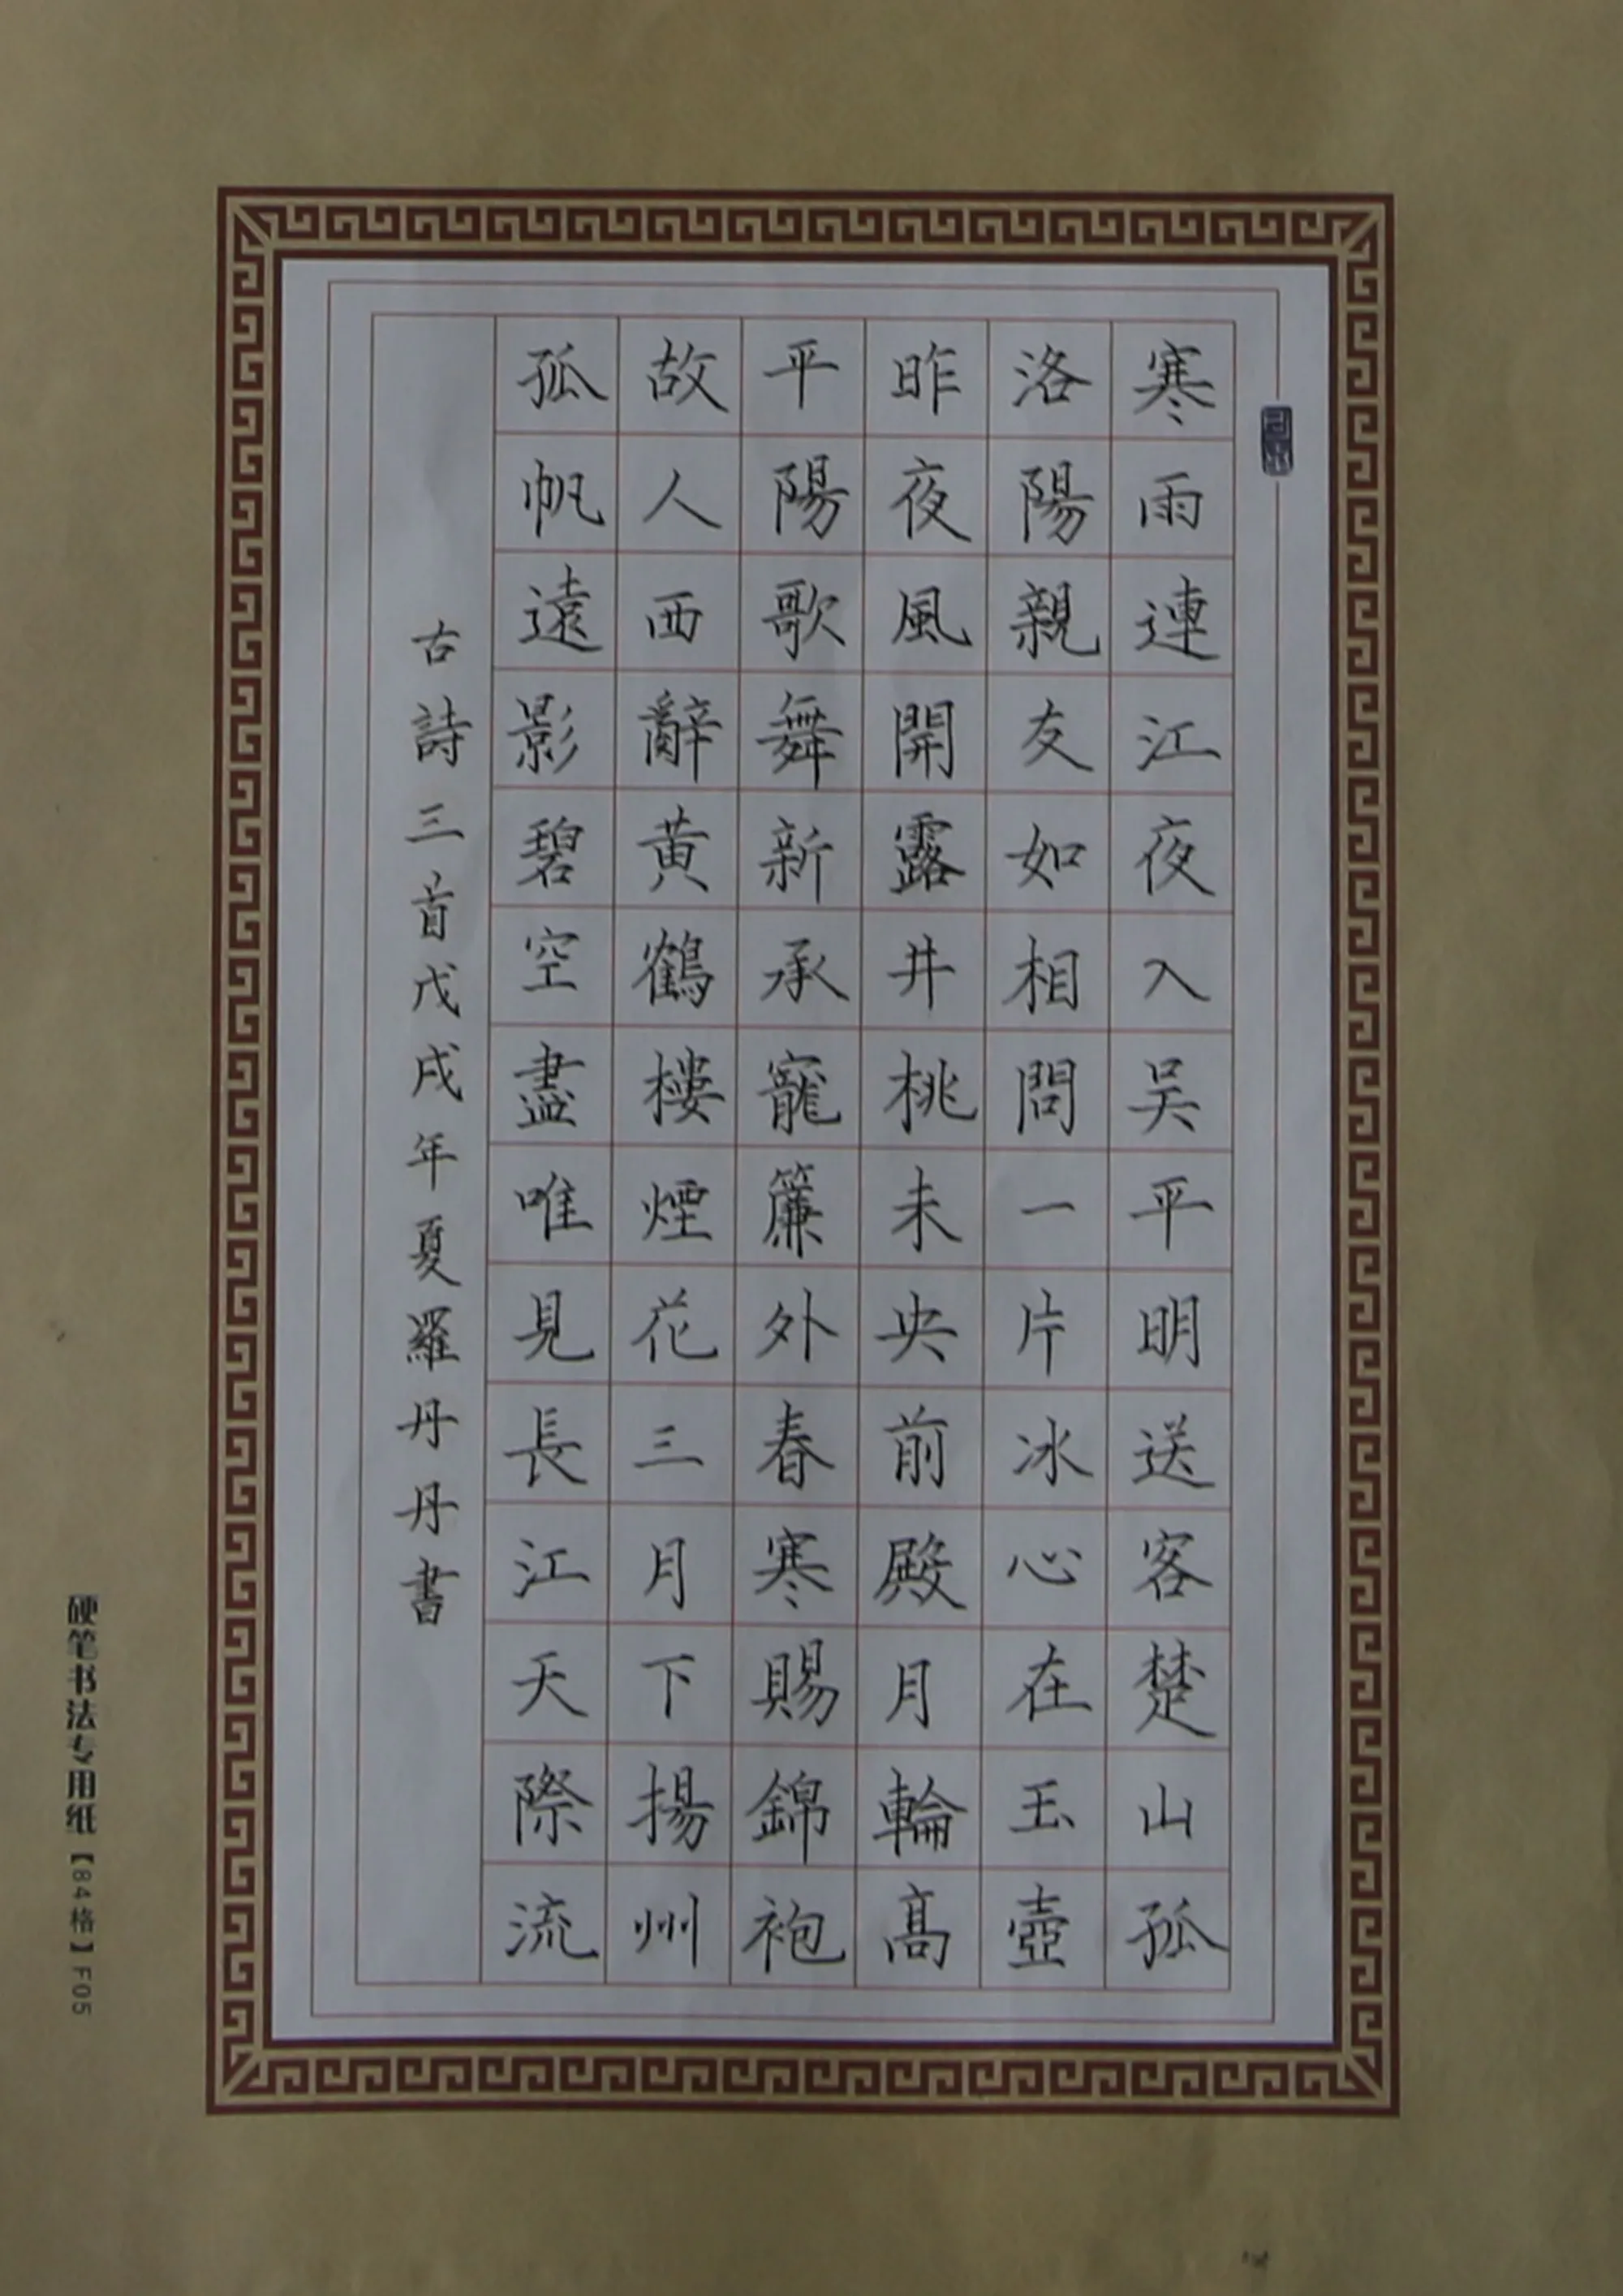 寒雨連江夜入吴平明送客楚山孤
洛陽親友如相問一片冰心在玉壺
昨夜風開露井桃未央前殿月輪高
平陽歌舞新承寵簾外春寒賜錦袍
故人西辭黄鶴樓煙花三月下揚州
孤帆遠影碧空盡唯見長江天際流
古詩三首戊戌年夏羅丹丹書
硬笔书法专用纸【84格】F05